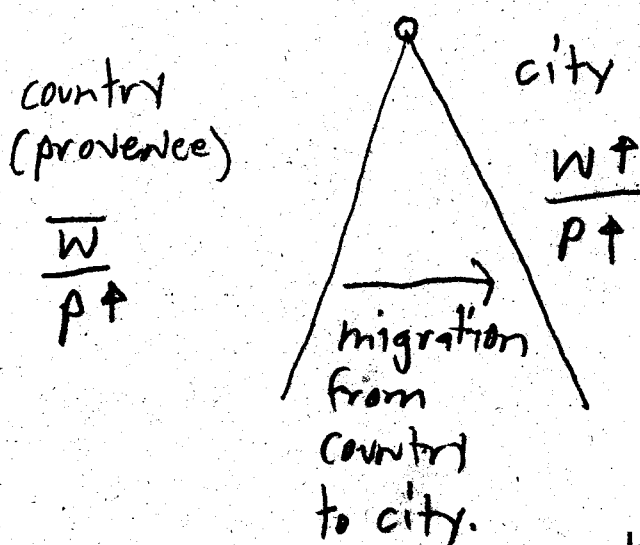 country
(provenee)
W̅
P ↑
city
W ↑
P ↑
migration
from
country
to city.